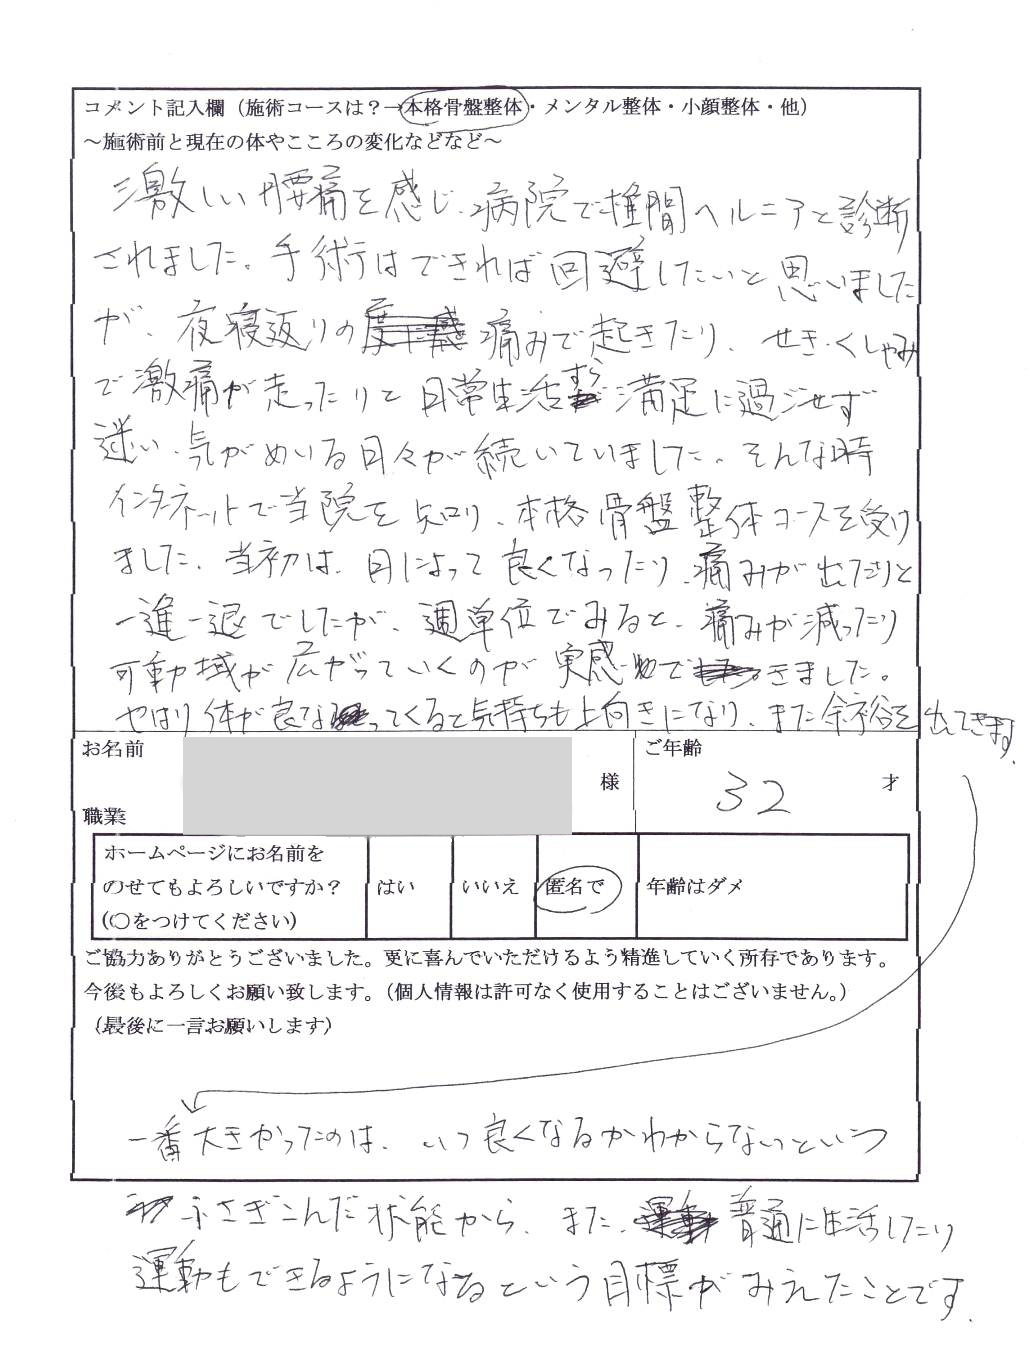 コメント記入欄（施術コースは？→本格骨盤整体・メンタル整体・小顔整体・他）
～施術前と現在の体やこころの変化などなど～
激しい腰痛を感じ、病院で椎間ヘルニアと診断
されました。手術はできれば回避したいと思いました
が、夜寝返りの痛みで起きたり、せき・くしゃみ
で激痛が走ったりと日常生活すら満足に過ごせず
迷い、気がめいる日々が続いていました。そんな時
インターネットで当院を知り、本格骨盤整体コースを受け
ました。当初は、日によって良くなったり、痛みが出たりと
一進一退でしたが、週単位でみると、痛みが減ったり
可動域が広がっていくのが実感できました。
やはり体が良くなってくると気持ちも上向きになり、また余裕も出てきます。
お名前
様
ご年齢
32
才
職業
ホームページにお名前を
のせてもよろしいですか？
（○をつけてください）
はい
いいえ
匿名で
年齢はダメ
ご協力ありがとうございました。更に喜んでいただけるよう精進していく所存であります。
今後もよろしくお願い致します。（個人情報は許可なく使用することはございません。）
（最後に一言お願いします）
一番大きかったのは、いつ良くなるかわからないという
ふさぎこんだ状態から、また、普通に生活したり
運動もできるようになるという目標がみえたことです。